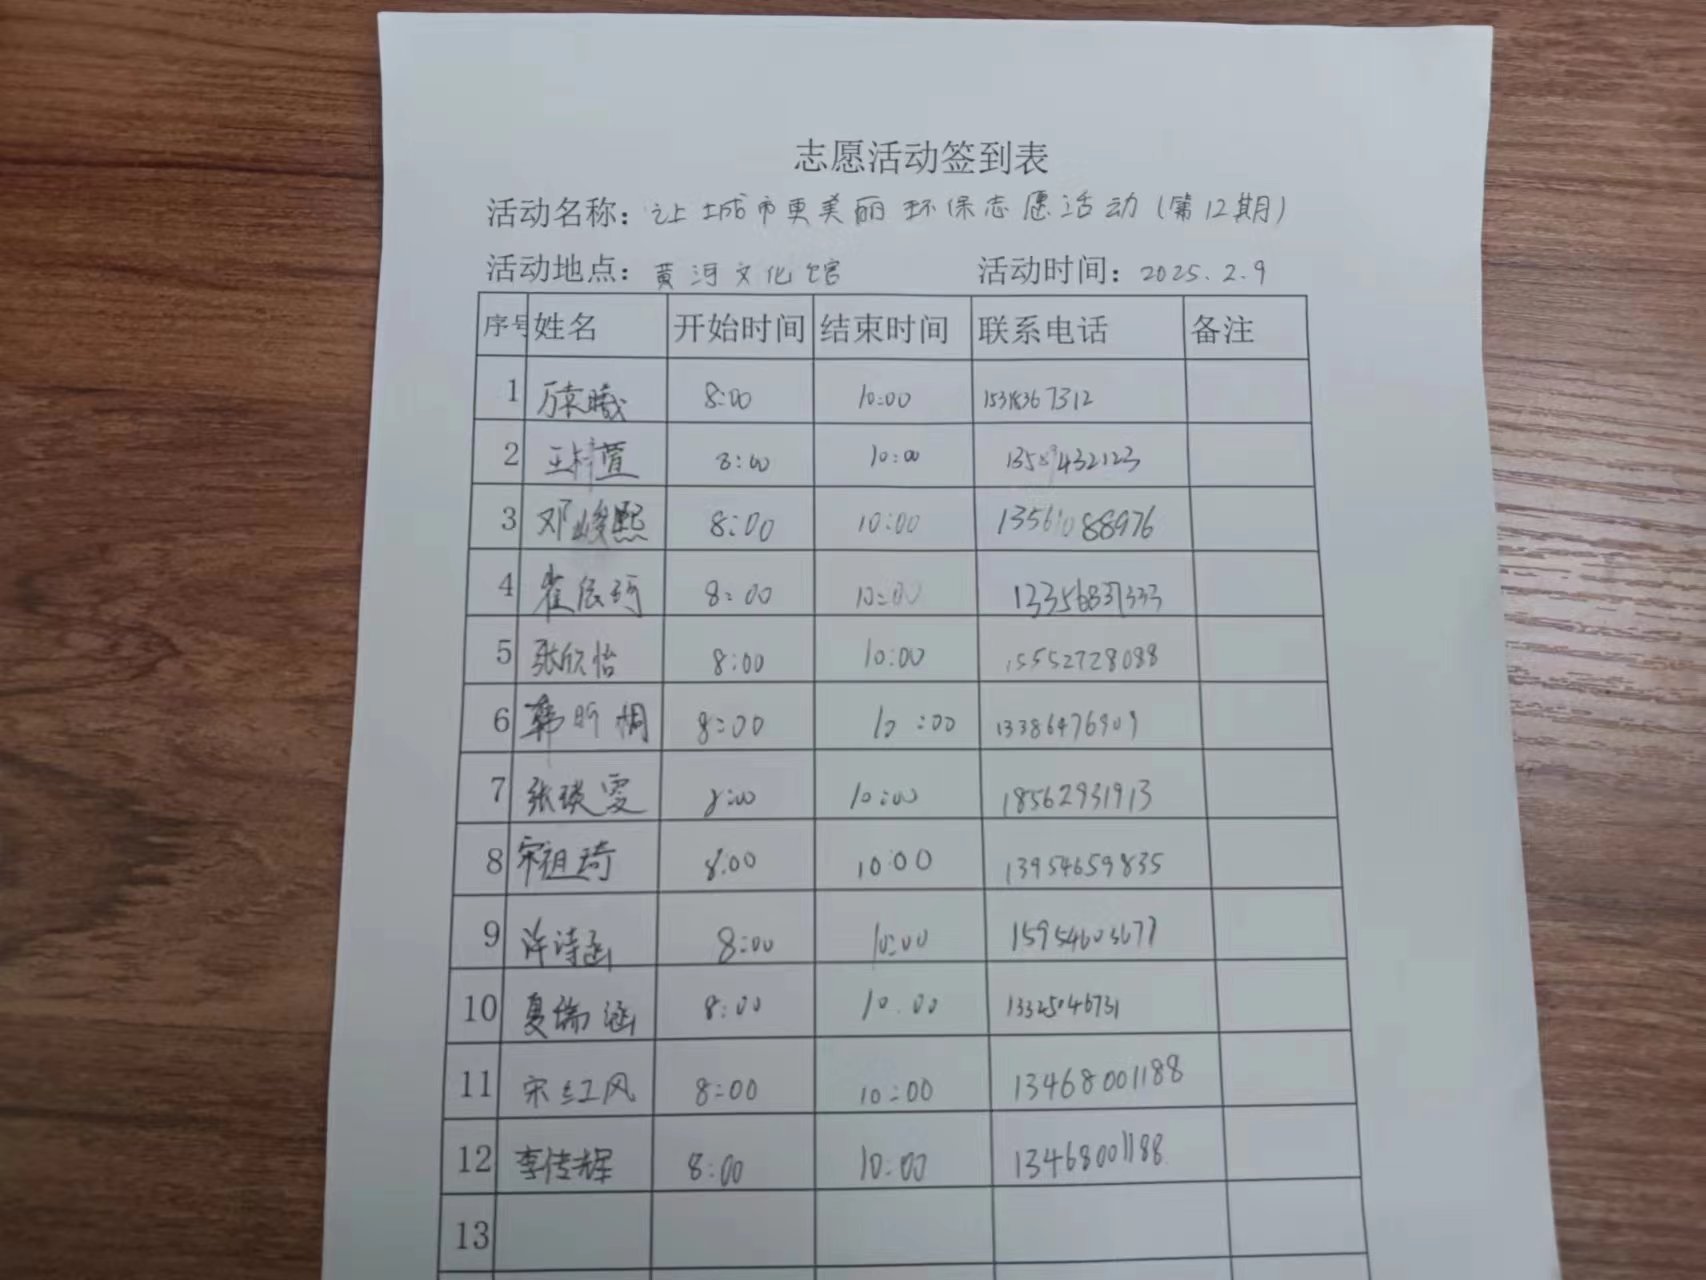 志愿活动签到表
活动名称：让城市更美丽环保志愿活动（第12期）
活动地点：黄河文化馆 活动时间：2025.2.9
序号 姓名 开始时间 结束时间 联系电话 备注
1 8:00 10:00 15318367312
2 王梓萱 8:00 10:00
3 邓峻熙 8:00 10:00 13561088976
4 崔辰珂 8:00 10:00 13356837333
5 张欣怡 8:00 10:00 15552728088
6 韩昕桐 8:00 10:00 13386476909
7 张瑛雯 8:00 10:00 18562931913
8 宋祖琦 8:00 10:00 13954659835
9 许诗涵 8:00 10:00 15954603677
10 夏瑞涵 8:00 10:00 13325046731
11 宋红风 8:00 10:00 13468001188
12 李传辉 8:00 10:00 13468001188
13